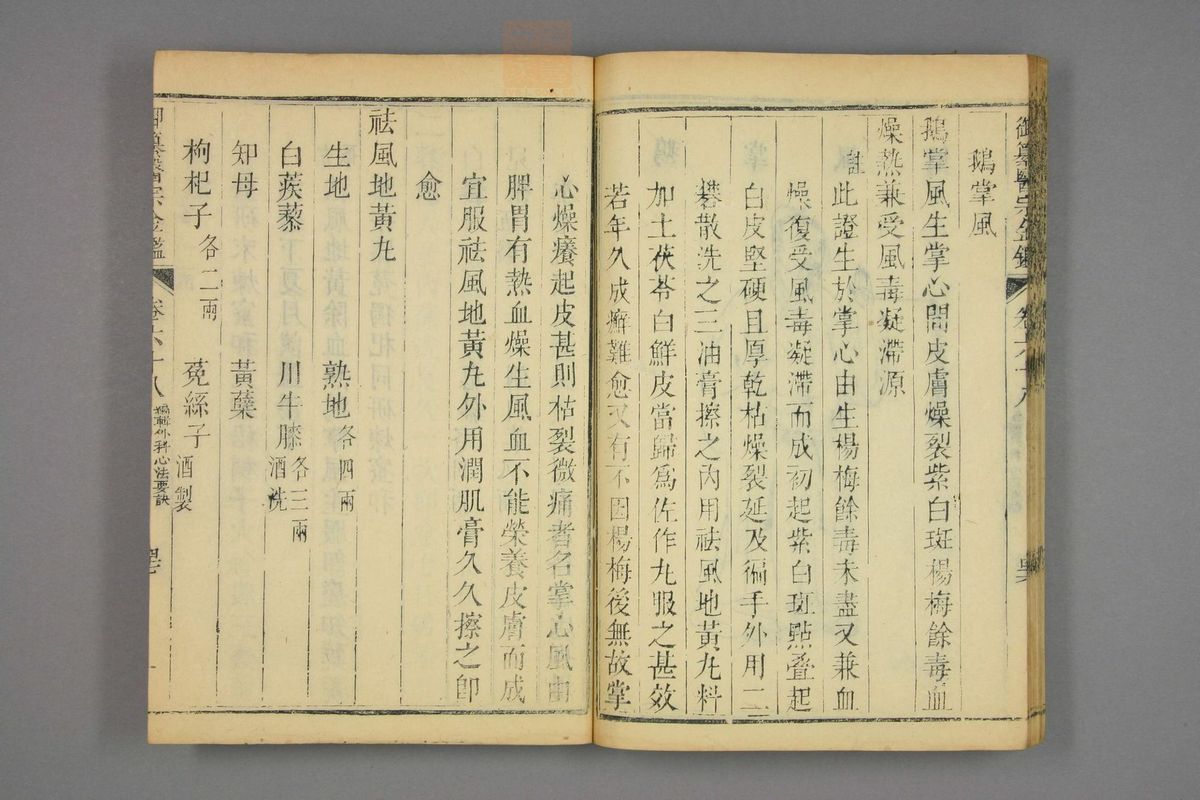 御纂醫宗金鑑 卷六十八
鵝掌風
鵝掌風生掌心間皮膚燥裂紫白斑楊梅餘毒血
燥熱兼受風毒凝滯源
註
此證生於掌心由生楊梅餘毒未盡又兼血
燥復受風毒凝滯而成初起紫白斑點叠起
白皮堅硬且厚乾枯燥裂延及徧手外用二
礬散洗之三油膏擦之內用祛風地黃丸料
加土茯苓白鮮皮當歸爲佐作丸服之甚效
若年久成癬難愈又有不因楊梅後無故掌
心燥癢起皮甚則枯裂微痛者名掌心風由
脾胃有熱血燥生風血不能榮養皮膚而成
宜服祛風地黃丸外用潤肌膏久久擦之卽
愈
祛風地黃丸
生地 熟地各四兩
白蒺藜 川牛膝酒洗各三兩
知母 黃蘗
枸杞子各二兩 菟絲子酒製
御纂醫宗金鑑 卷六十八 編輯外科心法要訣